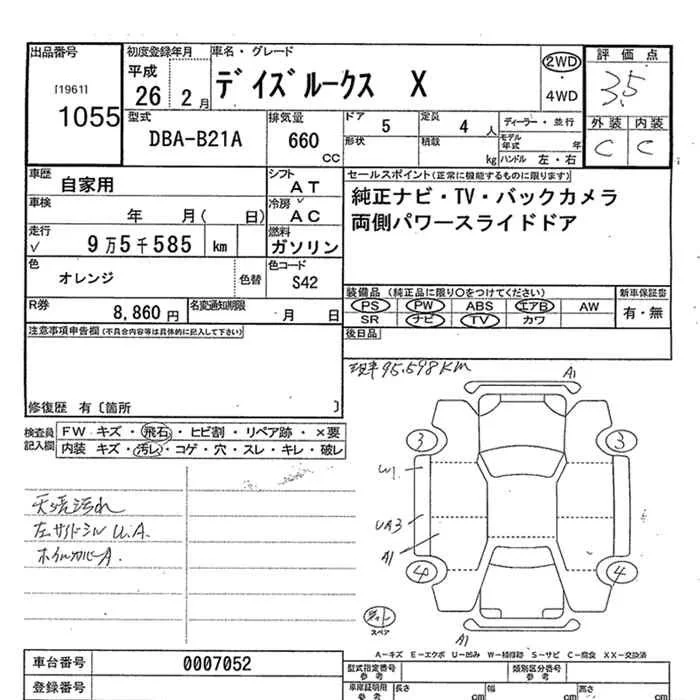 出品番号
[1961]
1055
初度登録年月
平成
26 2月
車名・グレード
デイズルークス X
2WD
・
4WD
評価点
3.5
外装 内装
C C
型式
DBA-B21A
排気量
660 CC
ドア
5
定員
4 人
形状
積載
kg
ディーラー・並行
モデル年式 年
ハンドル 左・右
車歴
自家用
シフト
AT
車検
年 月( 日)
冷房 √
AC
走行 √
9万5千585 km
燃料
ガソリン
色
オレンジ
色替
色コード
S42
R券
8,860円
名変通知期限
月 日
セールスポイント(正常に機能するものに限ります)
純正ナビ・TV・バックカメラ
両側パワースライドドア
装備品(純正品に限り○をつけてください)
PS PW ABS エアB AW
SR ナビ TV カワ
新車保証書
有・無
後日品
注意事項申告欄(不具合内容等は具体的に記入して下さい)
修復歴 有〔箇所 〕
現車95.598KM
検査員記入欄
FW キズ・飛石・ヒビ割・リペア跡・×要
内装 キズ・汚レ・コゲ・穴・スレ・キレ・破レ
天張汚れ
左サイドシルU.A.
ホイルカバーA.
A1
3 3
W1
UA3
A1
4 4
スペア
A1
A-キズ E-エクボ U-凹み W-補修跡 S-サビ C-腐食 XX-交換済
車台番号
0007052
登録番号
型式指定番号
参考
類別区分番号
参考
車庫証明用
参考
長さ cm
幅 cm
高さ cm